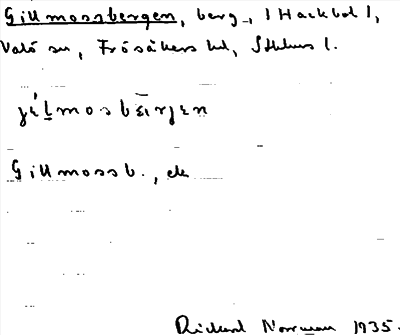 Gillmossbergen, berg, i Hackbol,
Valö sn, Frösåkers hd, Sthlms l.
Gillmossb., ek
Rickard Norrman 1935.